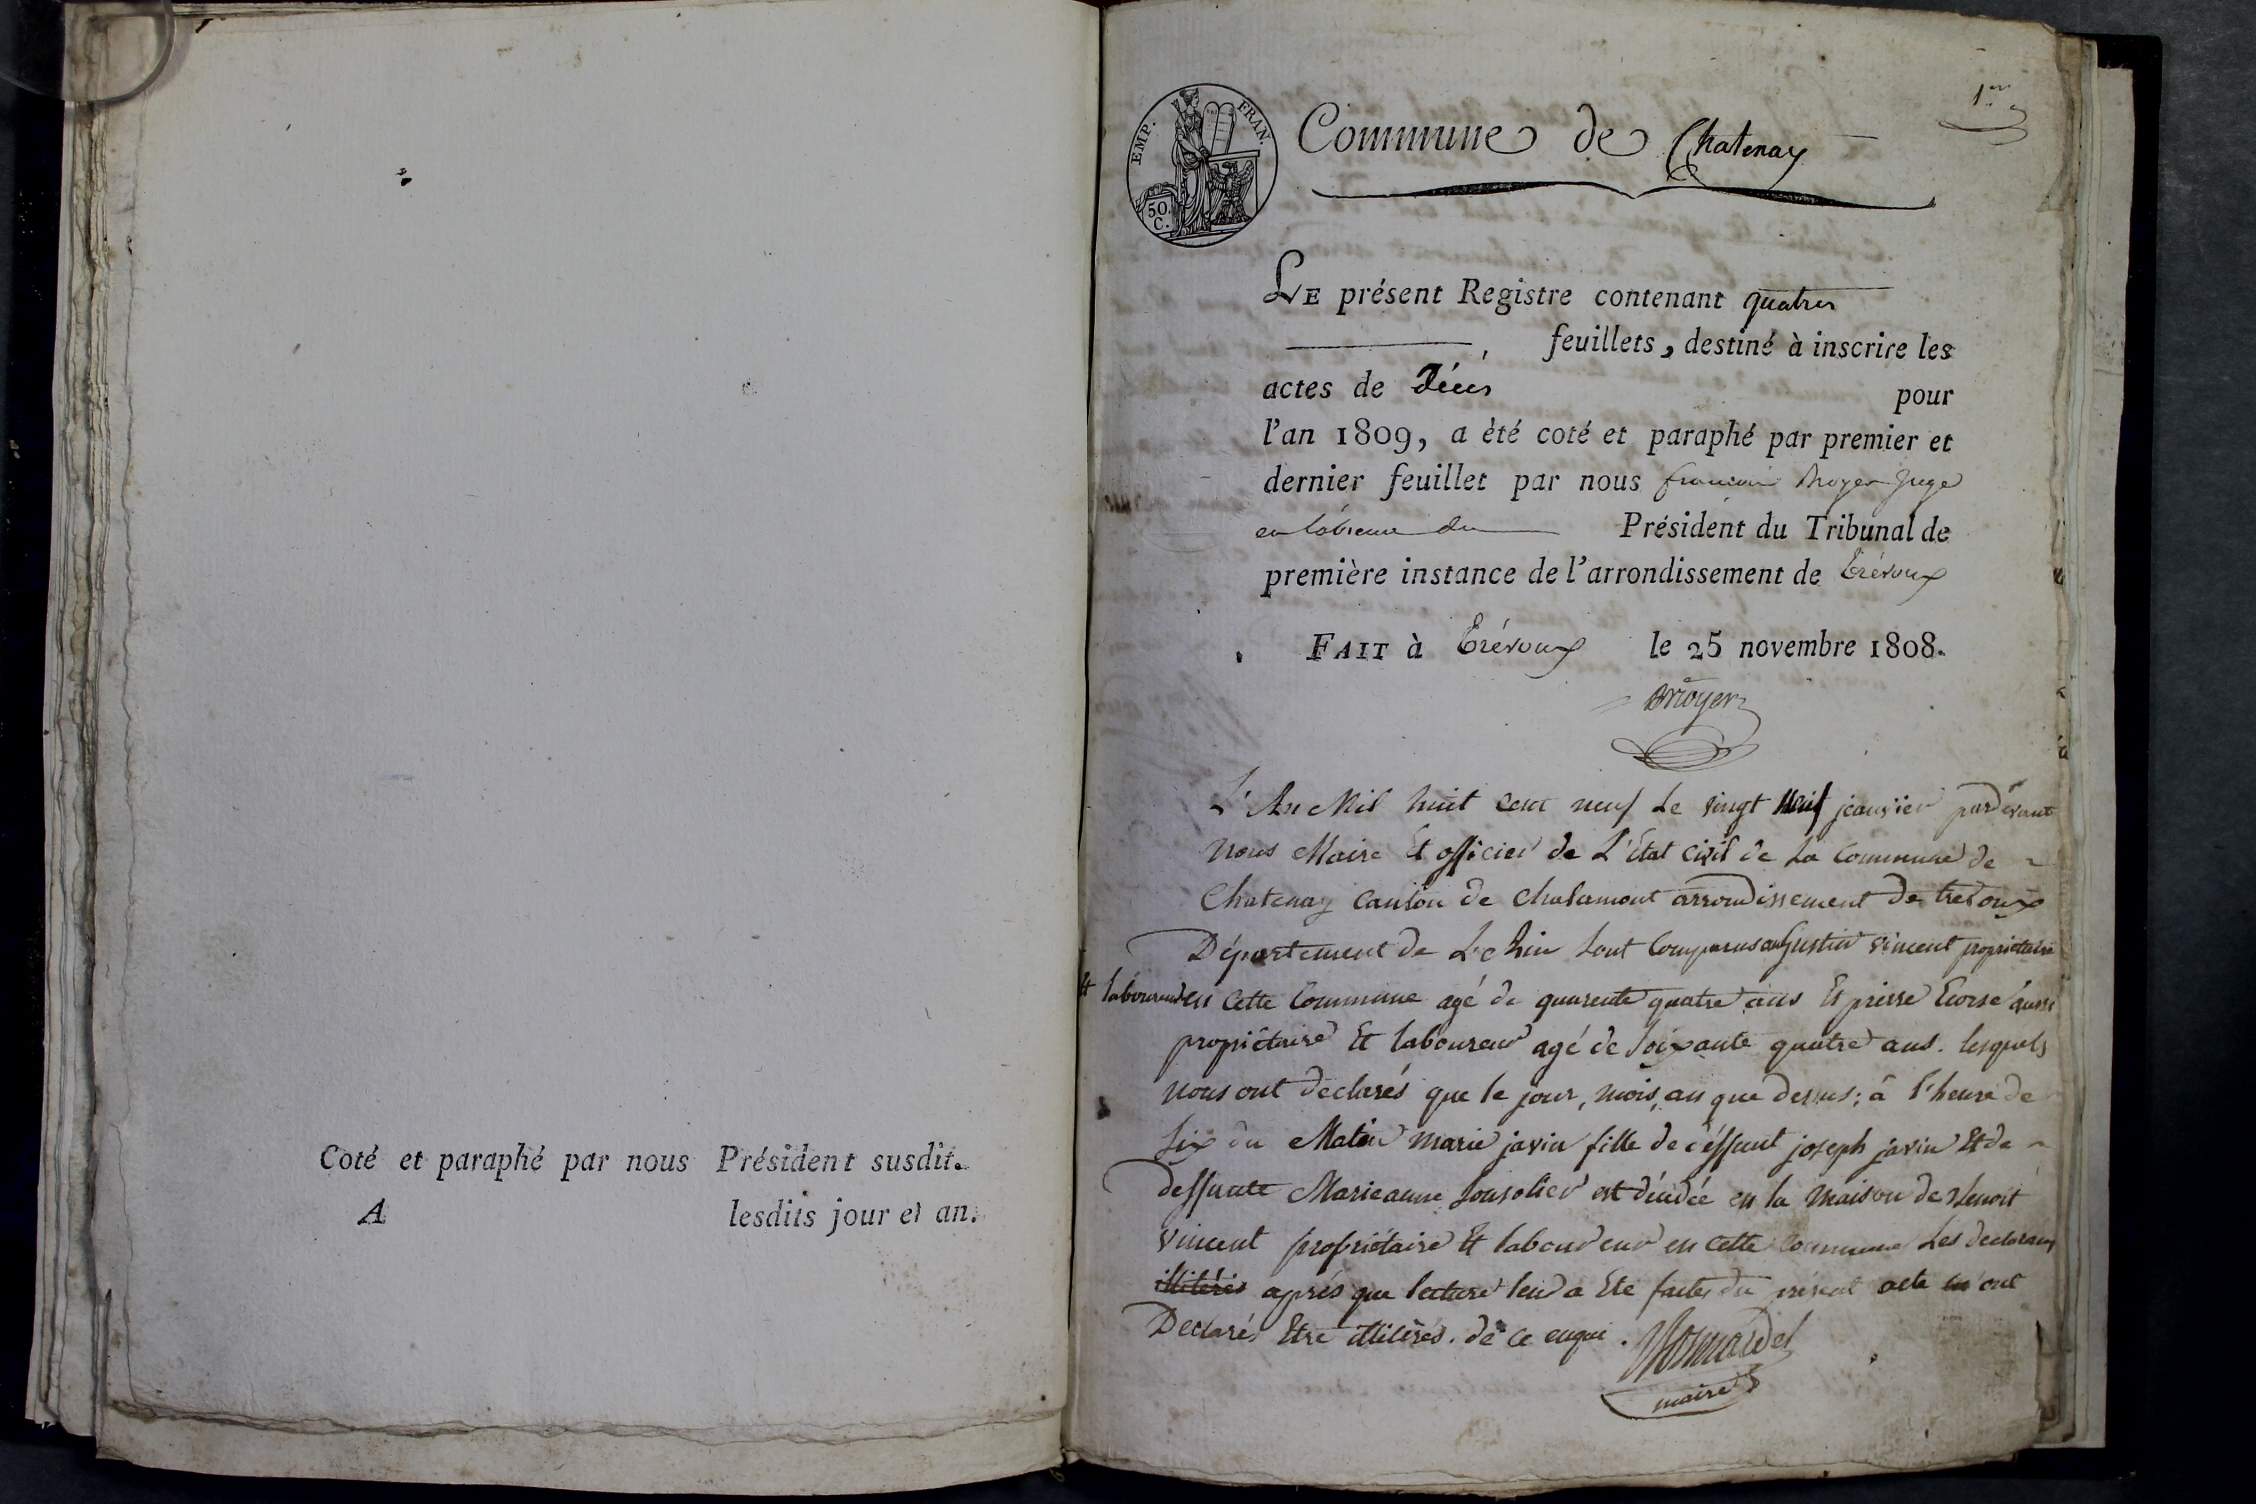 Coté et paraphé par nous Président susdit.
A lesdits jour et an.
1er
EMP. FRAN.
50. C.
Commune de Chatenay
LE présent Registre contenant quatre
feuillets, destiné à inscrire les
actes de Décès pour
l'an 1809, a èté coté et paraphé par premier et
dernier feuillet par nous françois Broyer juge
en l'absence du Président du Tribunal de
première instance de l'arrondissement de Trévoux
FAIT à Trévoux le 25 novembre 1808.
Broyer
L'An Mil huit cent neuf Le vingt janvier pardevant
nous Maire Et officier de L'Etat civil de La Commune de
Chatenay Canton de Chalamont arrondissement de trevoux
Département de L'Ain sont Comparus augustin vincent propriétaire
Et laboureur en Cette Commune agé de quarente quatre ans Et pierre aussi
propriétaire Et laboureur agé de soixante quatre ans. lesquels
nous ont déclarés que le jour, mois, an que dessus; à l'heure de
six du Matin marie javin fille de déffunt joseph javin Et de
deffunte Marieanne est décédée en la maison de Benoit
vincent propriétaire Et laboureur en cette Commune Les declarans
illitérés après que lecture leur a Eté faites du présent acte m'ont
Declarés Etre illitérés. de ce enqui.
maire